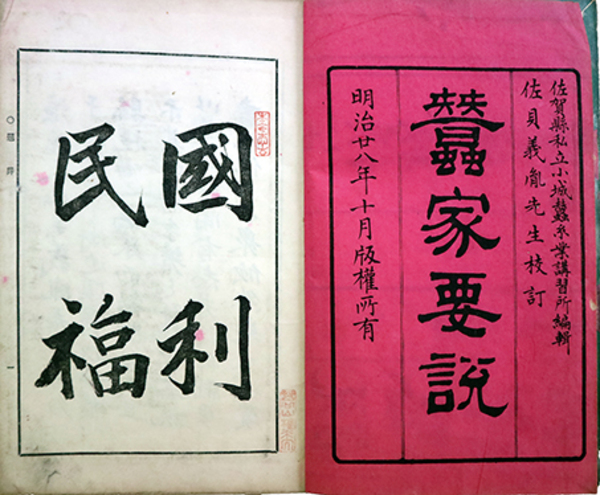 佐賀縣私立小城蠶糸業講習所編輯
佐貝義胤先生校訂
蠶家要說
明治廿八年十月版權所有
國利
民福
一